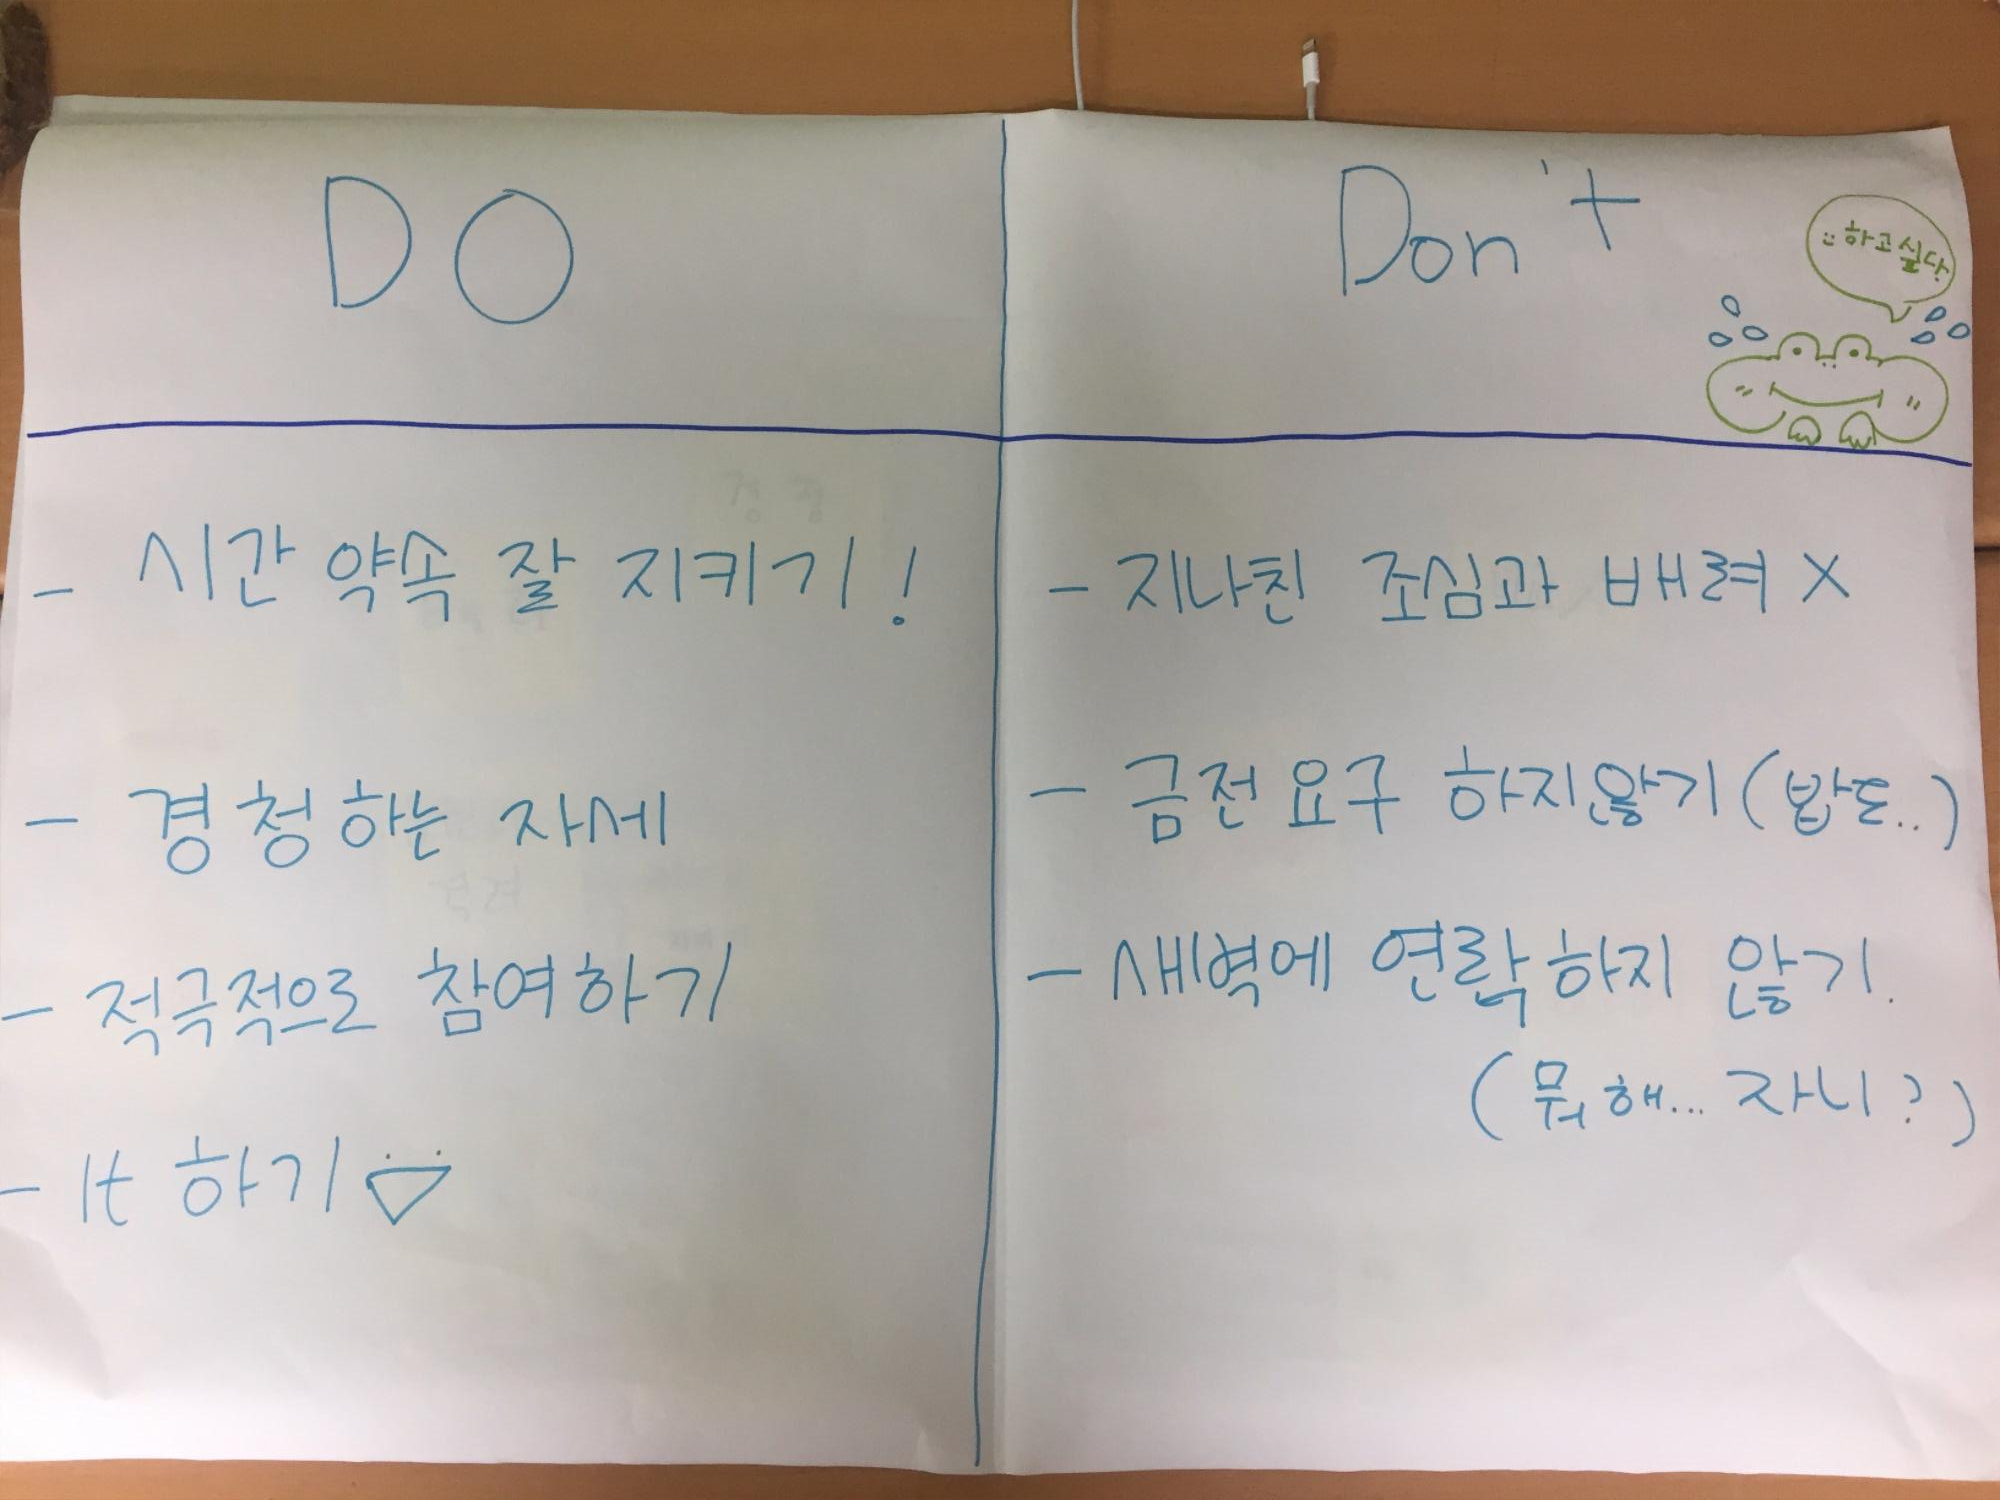 DO
- 시간 약속 잘 지키기!
- 경청하는 자세
- 적극적으로 참여하기
- It 하기
Don't
하고싶다
- 지나친 조심과 배려 X
- 금전요구 하지않기 (밥도..)
- 새벽에 연락하지 않기.
(뭐해... 자니?)